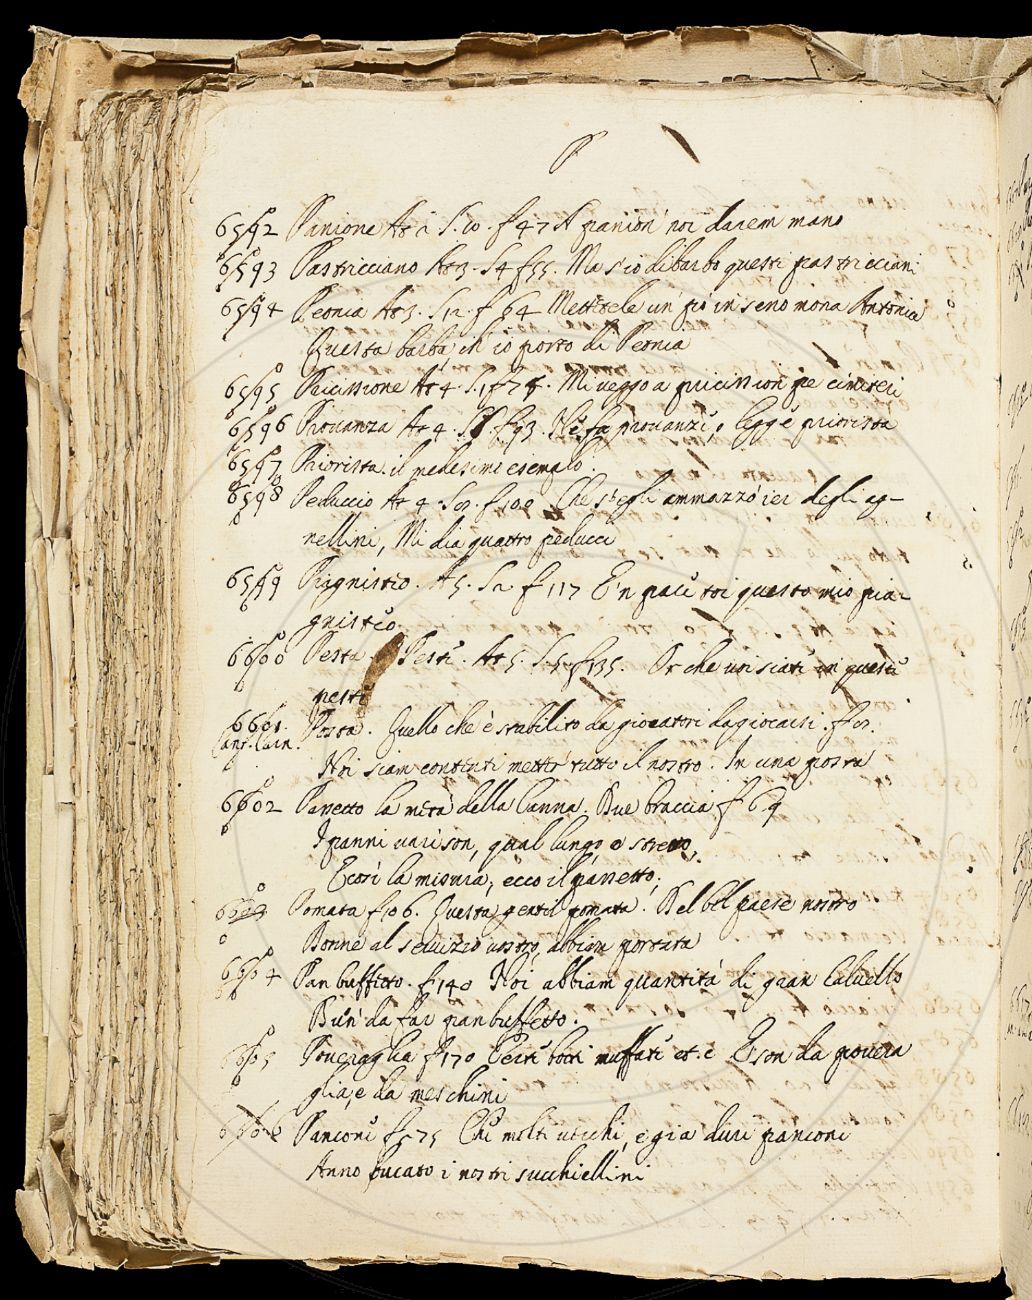 P
6592 Panione At. 1 S. 10. f 47 A panion noi darem mano
6593 Pastricciano At 3. S 4 f 55. Ma s'io dibarbo questi pastricciani
6594 Peonia At 3. S. 12. f 64 Mettetele un po' in seno mona Antonia
Questa barba, ch' io porto di Peonia
6595 At 4. S. 1 f 75. Mi veggo a
6596 Prouanza At 4. S 8. f 93. prouanze, o legge priorista
6597 Priorista. il medesimo esempio.
6598 Peduccio At 4. f 100 Che s'egli ammazzò ier degli ag-
nellini, Mi dia quattro peducci
6599 Piagnisteo. At 5. f 117 questo mio pia-
gnisteo.
6600 Pesta Peste. At 5. S. 5. f 135. Or che un siate in queste
peste
6601 Posta. Quello che è stabilito da giocatori da giocarsi.
Cant. Carn. Noi siam contenti metter tutto il nostro. In una posta
6602 Passetto la metà della Canna. Due braccia f 69
I panni uari son, qual lungo, o stretto,
Ecosì la misura, ecco il passetto;
6603 Pomata f 106. Questa gentil pomata. Del bel paese nostro
Donne al seruizio uostro, abbiam portata
6604 Pan buffetto. f 140 Noi abbiam quantità di gran Caluello
Bun' da far pan buffetto.
6605 Poueraglia f 170 botti muffate et. c E son da pouera
glia, e da meschini
6606 Pancone f 575 Che molti uecchi, e già duri panconi
Anno bucato i nostri succhiellini